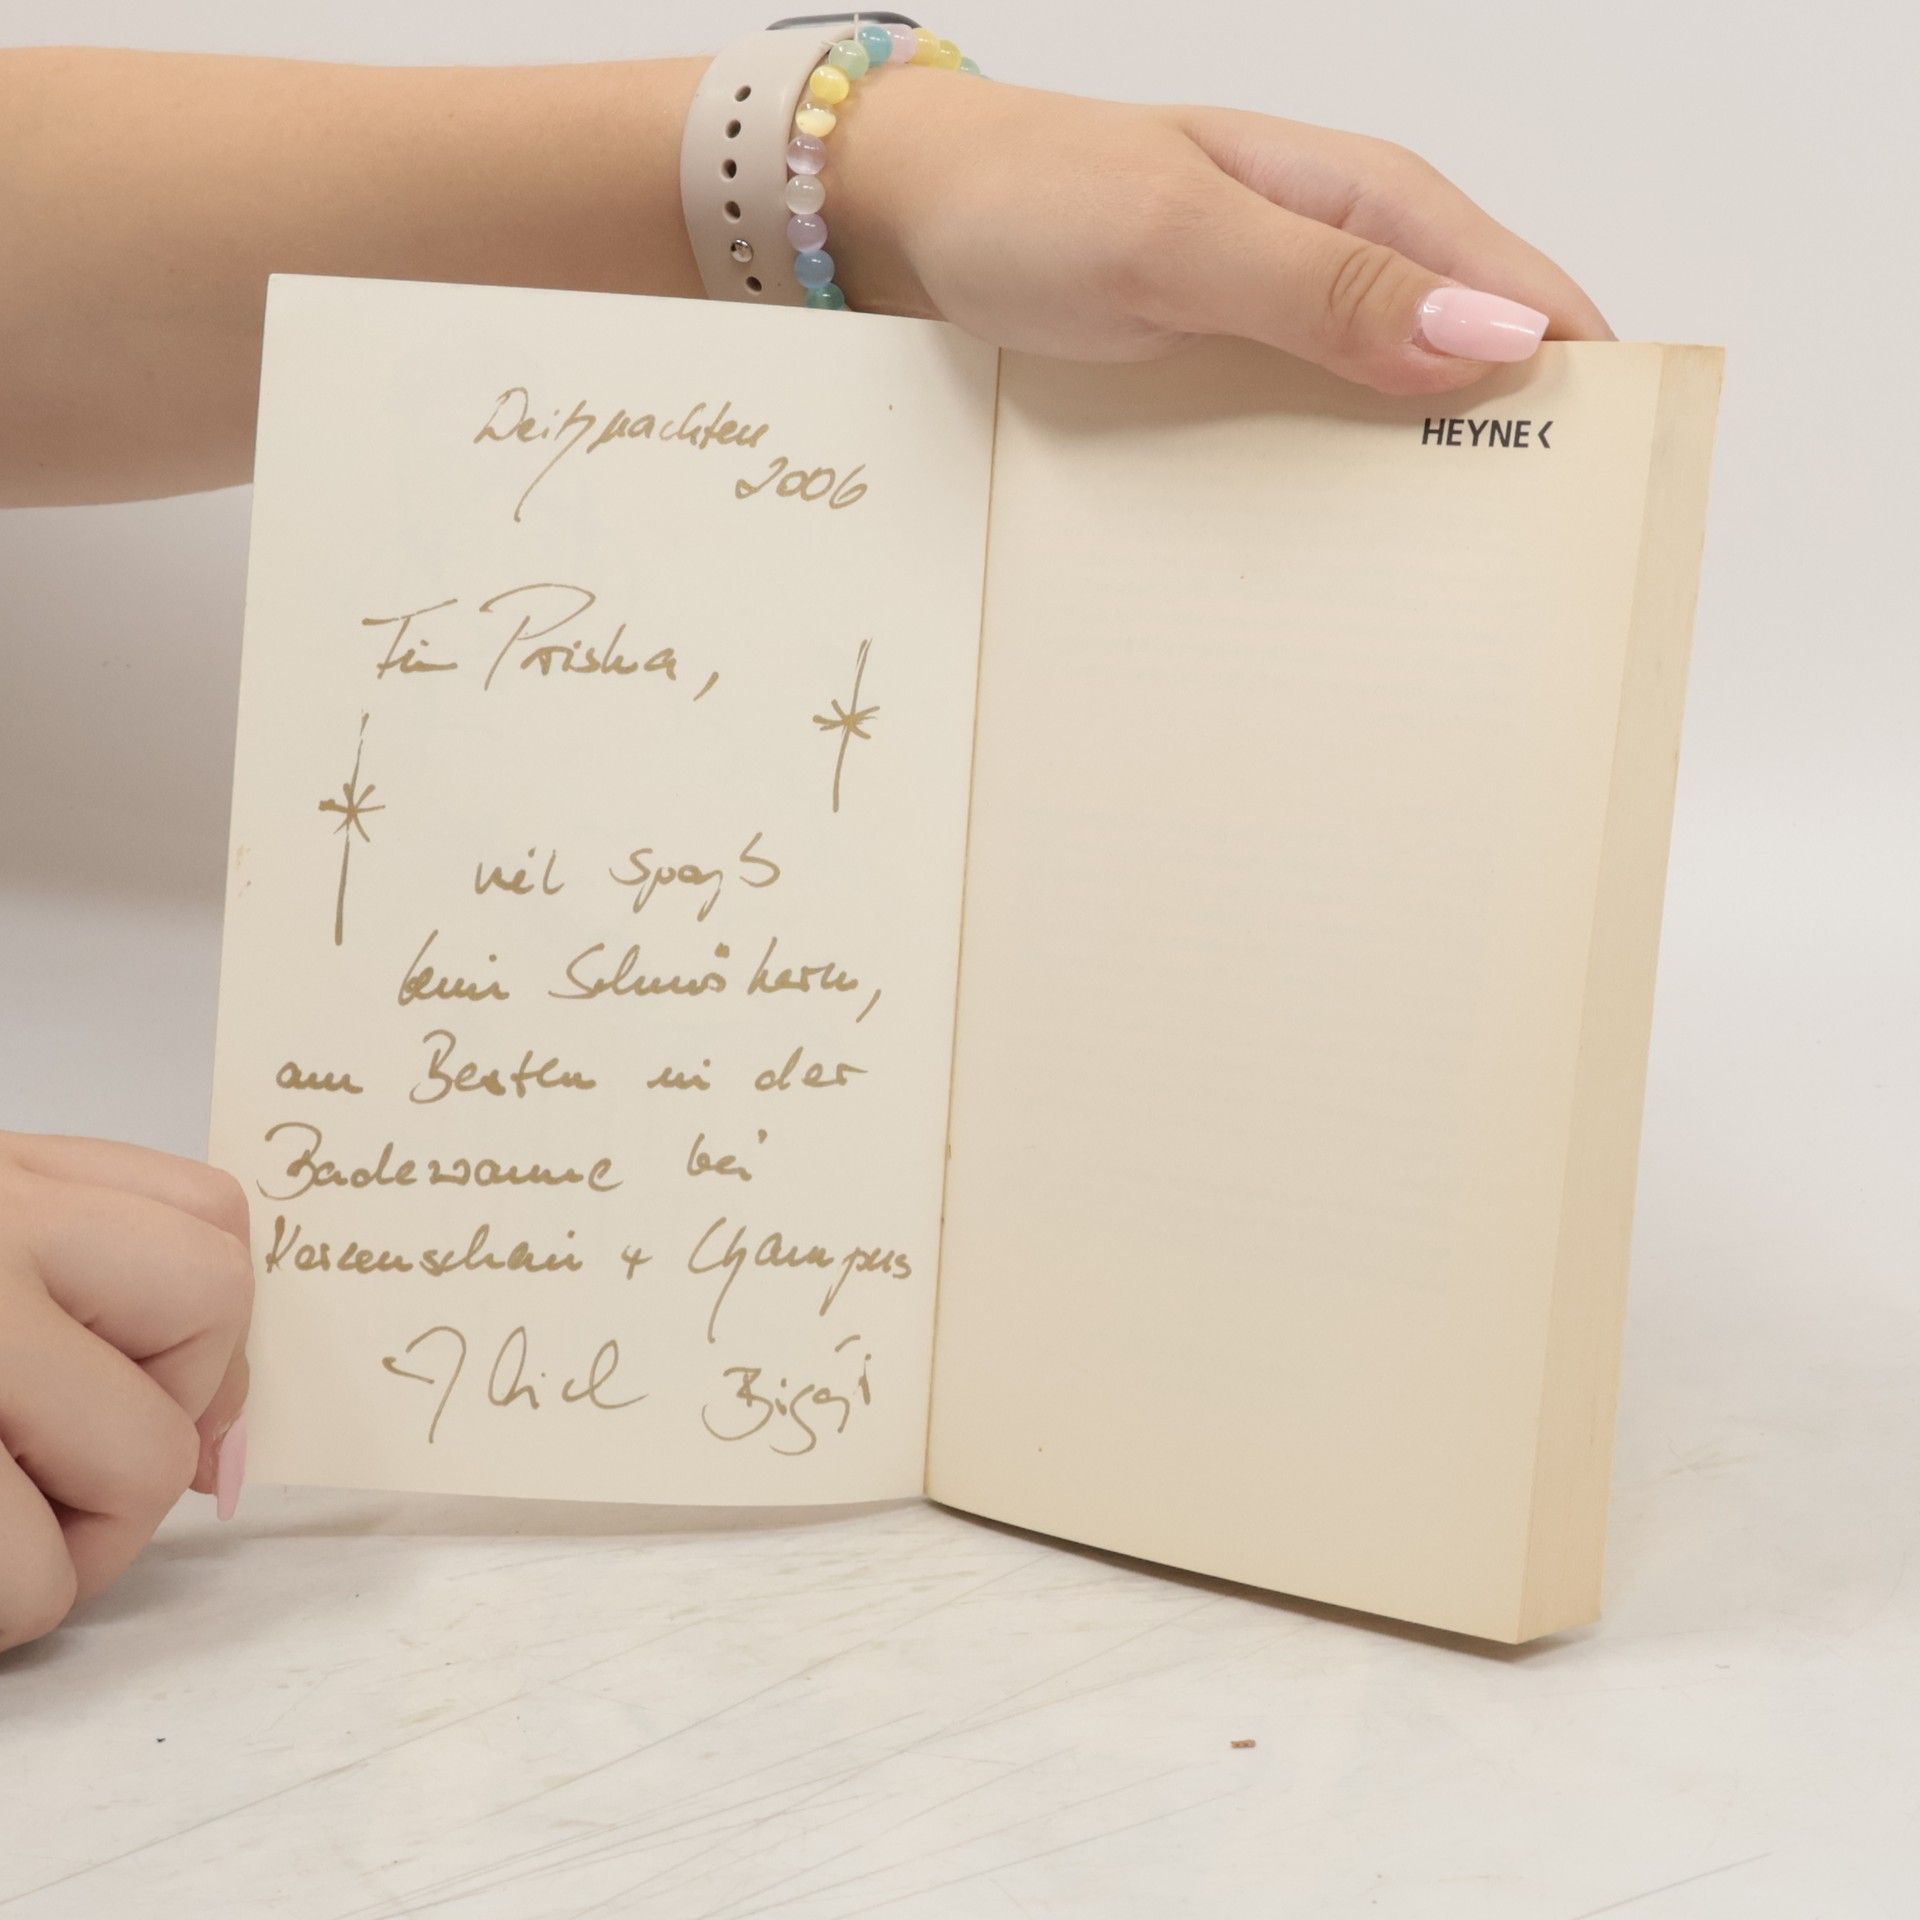 Weihnachten
2006
Für Priska,
viel Spaß
beim Schmökern,
am Besten in der
Badewanne bei
Kerzenschein + Champus
Biggi
HEYNE<